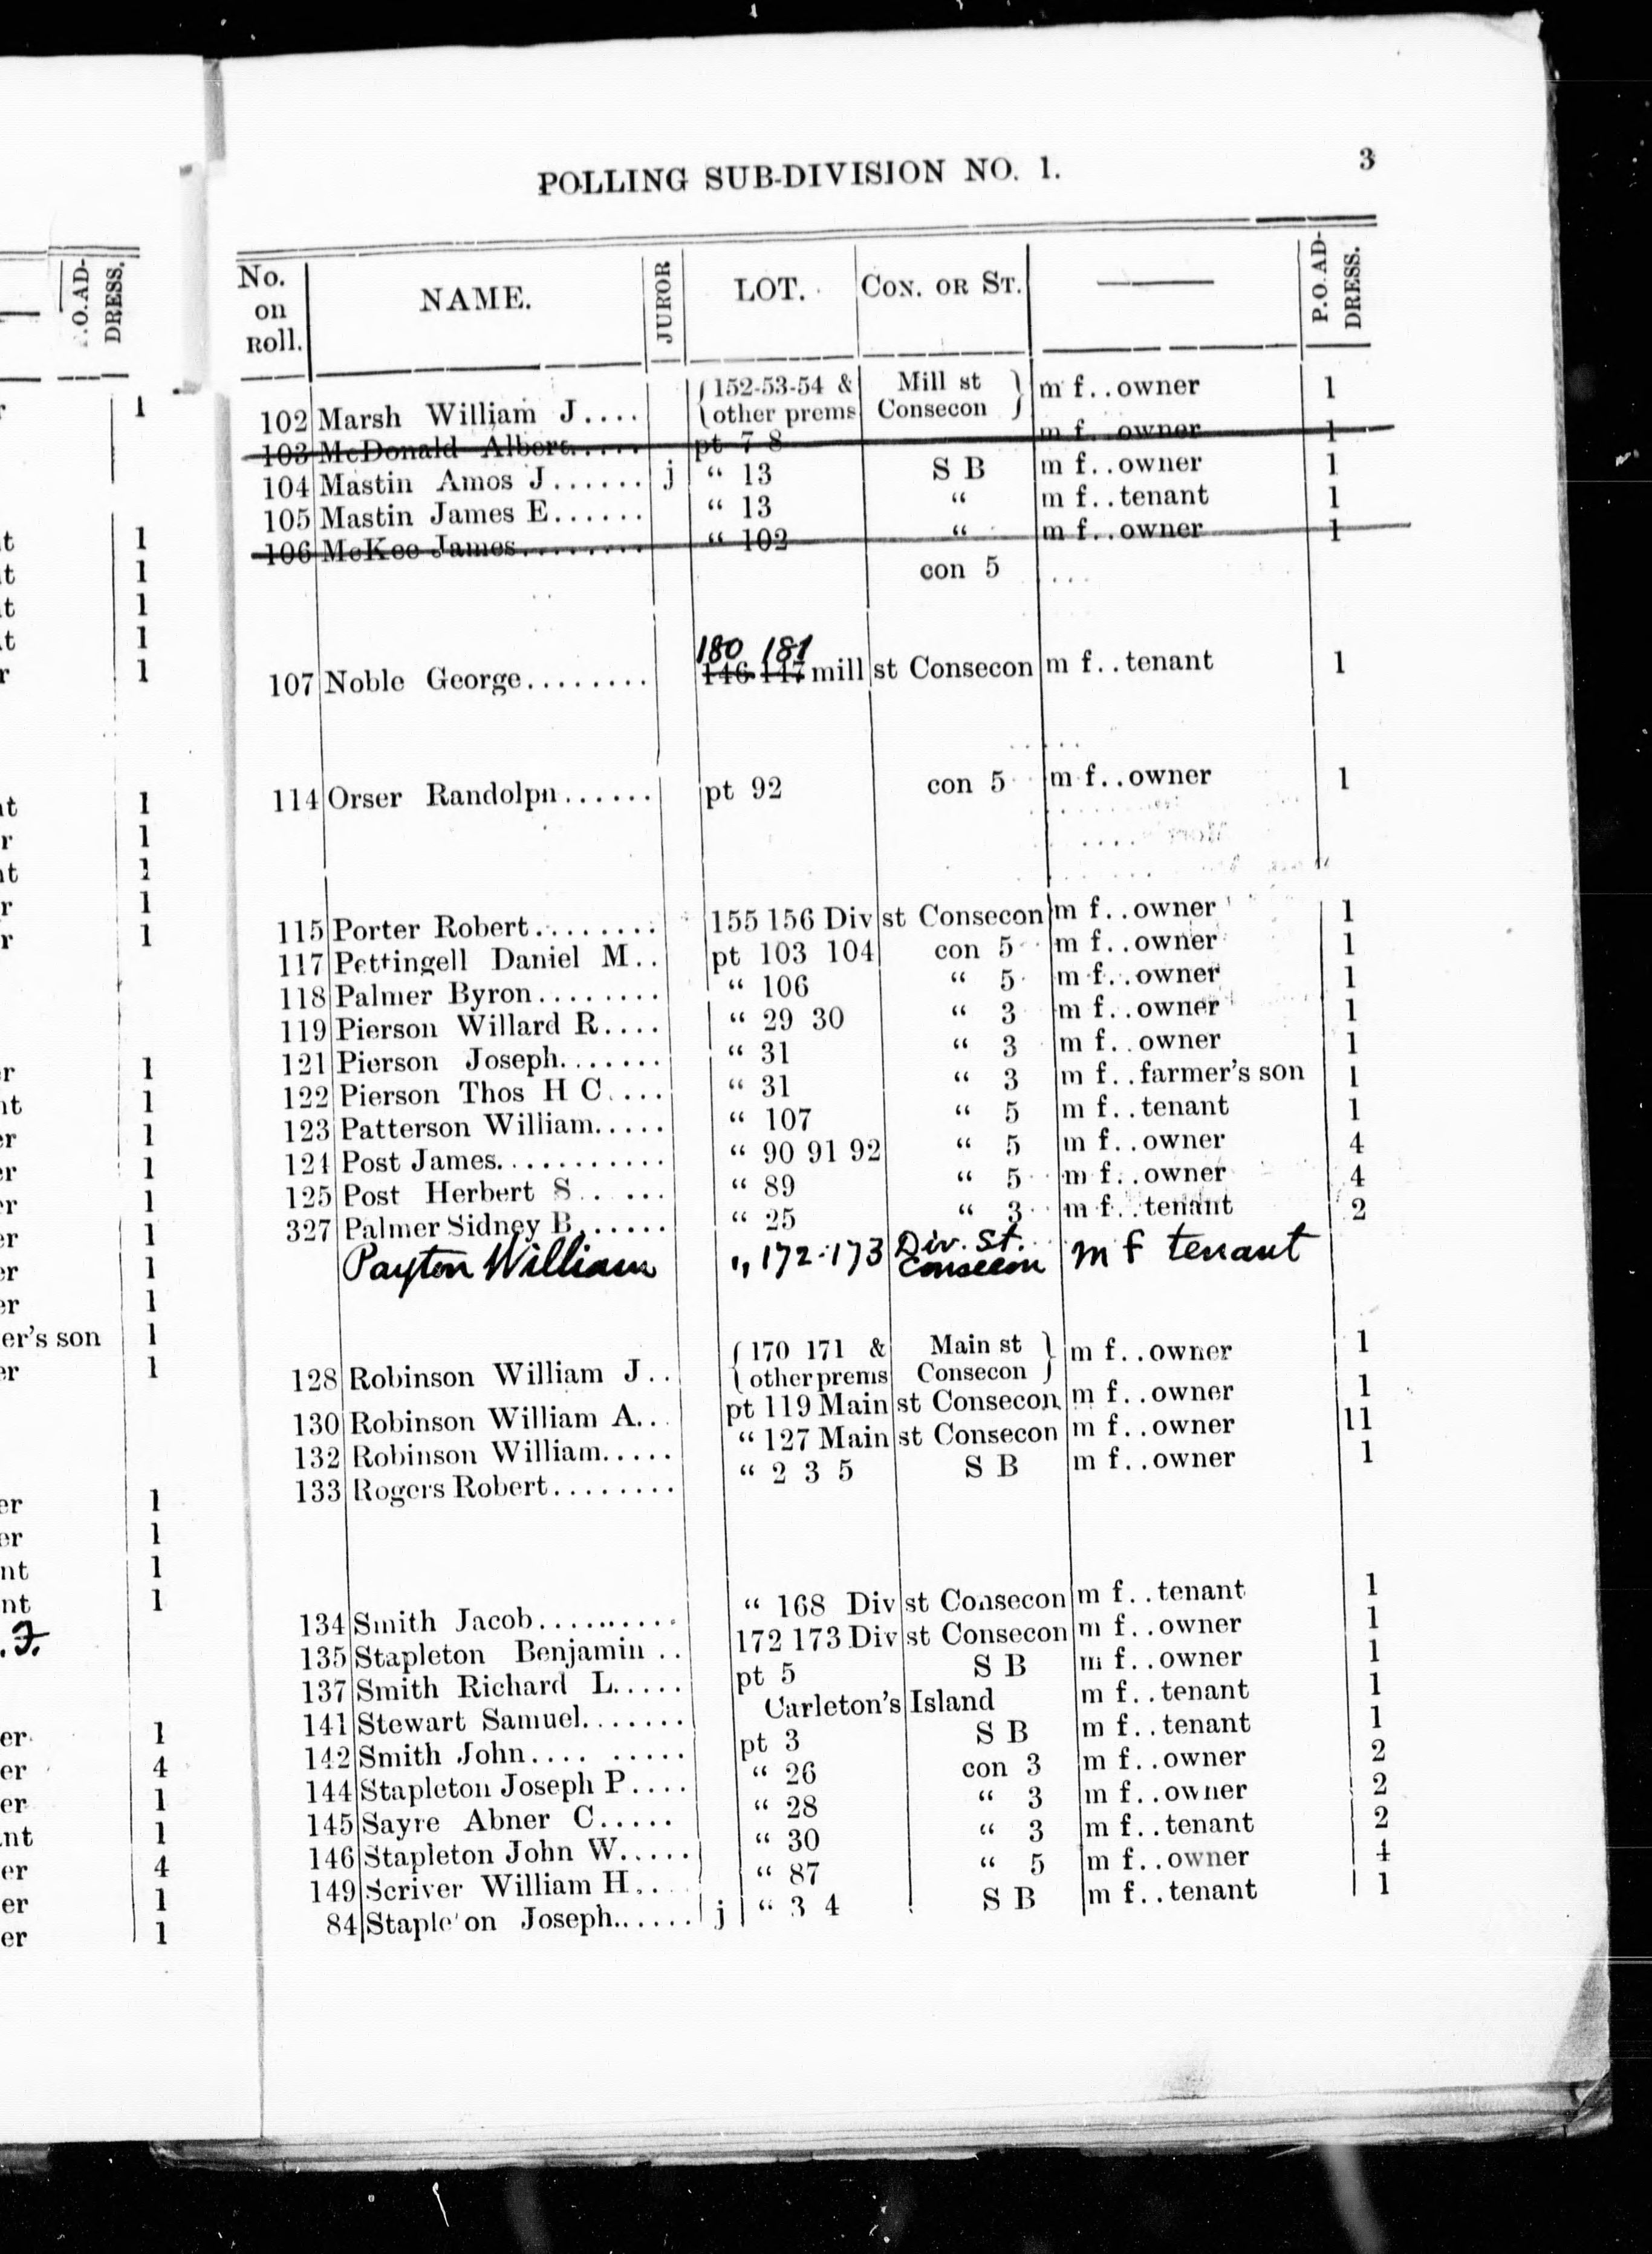 POLLING SUB-DIVISION NO. 1. 3
No. on Roll. NAME. JUROR LOT. CON. OR ST. P.O. ADDRESS.
102 Marsh William J.... 152-53-54 & other prems Mill st Consecon m f..owner 1
103 McDonald Albert..... pt 7 8 m f..owner 1
104 Mastin Amos J...... j “ 13 S B m f..owner 1
105 Mastin James E...... “ 13 “ m f..tenant 1
106 McKee James........ “ 102 “ m f..owner 1
con 5
180 181
107 Noble George........ 146 147 mill st Consecon m f..tenant 1
114 Orser Randolph...... pt 92 con 5 m f..owner 1
115 Porter Robert........ 155 156 Div st Consecon m f..owner 1
117 Pettingell Daniel M.. pt 103 104 con 5 m f..owner 1
118 Palmer Byron........ “ 106 “ 5 m f..owner 1
119 Pierson Willard R.... “ 29 30 “ 3 m f..owner 1
121 Pierson Joseph....... “ 31 “ 3 m f..owner 1
122 Pierson Thos H C.... “ 31 “ 3 m f..farmer's son 1
123 Patterson William..... “ 107 “ 5 m f..tenant 1
124 Post James........... “ 90 91 92 “ 5 m f..owner 4
125 Post Herbert S...... “ 89 “ 5 m f..owner 4
327 Palmer Sidney B...... “ 25 “ 3 m f..tenant 2
Payton William „ 172-173 Div. St. Consecon m f tenant
128 Robinson William J.. 170 171 & other prems Main st Consecon m f..owner 1
130 Robinson William A... pt 119 Main st Consecon m f..owner 1
132 Robinson William..... “ 127 Main st Consecon m f..owner 11
133 Rogers Robert........ “ 2 3 5 S B m f..owner 1
134 Smith Jacob.......... “ 168 Div st Consecon m f..tenant 1
135 Stapleton Benjamin .. 172 173 Div st Consecon m f..owner 1
137 Smith Richard L..... pt 5 S B m f..owner 1
141 Stewart Samuel....... Carleton's Island m f..tenant 1
142 Smith John.... ..... pt 3 S B m f..tenant 1
144 Stapleton Joseph P.... “ 26 con 3 m f..owner 2
145 Sayre Abner C..... “ 28 “ 3 m f..owner 2
146 Stapleton John W..... “ 30 “ 3 m f..tenant 2
149 Scriver William H... “ 87 “ 5 m f..owner 4
84 Staple'on Joseph...... j “ 3 4 S B m f..tenant 1